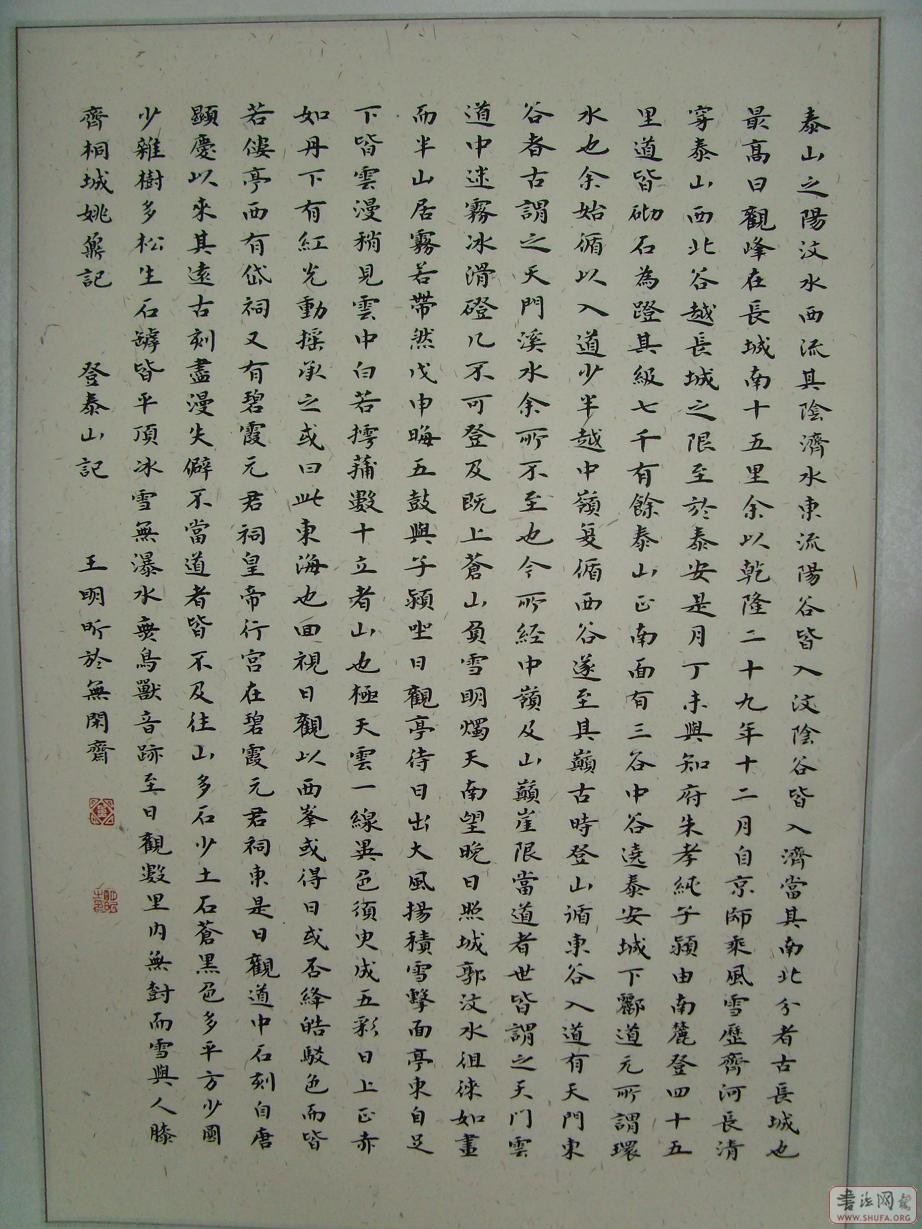 泰山之陽汶水西流其陰濟水東流陽谷皆入汶陰谷皆入濟當其南北分者古長城也
最高日觀峰在長城南十五里余以乾隆二十九年十二月自京師乘風雪歷齊河長清
穿泰山西北谷越長城之限至於泰安是月丁未與知府朱孝純子潁由南麓登四十五
里道皆砌石為磴其級七千有餘泰山正南面有三谷中谷遶泰安城下酈道元所謂環
水也余始循以入道少半越中嶺复循西谷遂至其巔古時登山循東谷入道有天門東
谷者古謂之天門溪水余所不至也今所经中嶺及山巔崖限當道者世皆謂之天门雲
道中迷霧冰滑磴几不可登及既上蒼山負雪明燭天南望晚日照城郭汶水徂徠如畫
而半山居霧若帶然戊申晦五鼓與子潁坐日觀亭待日出大風揚積雪擊面亭東自足
下皆雲漫稍見雲中白若摴蒱數十立者山也極天雲一線異色須臾成五彩日上正赤
如丹下有紅光動摇承之或曰此東海也回視日觀以西峯或得日或否絳皓駁色而皆
若僂亭西有岱祠又有碧霞元君祠皇帝行宮在碧霞元君祠東是日觀道中石刻自唐
顯慶以來其遠古刻盡漫失僻不當道者皆不及往山多石少土石蒼黑色多平方少圆
少雜樹多松生石罅皆平頂冰雪無瀑水無鳥獸音跡至日觀數里内無尌而雪與人膝
齊桐城姚鼐記 登泰山記 王明昕於無閑齋
書法网
WWW.SHUFA.ORG